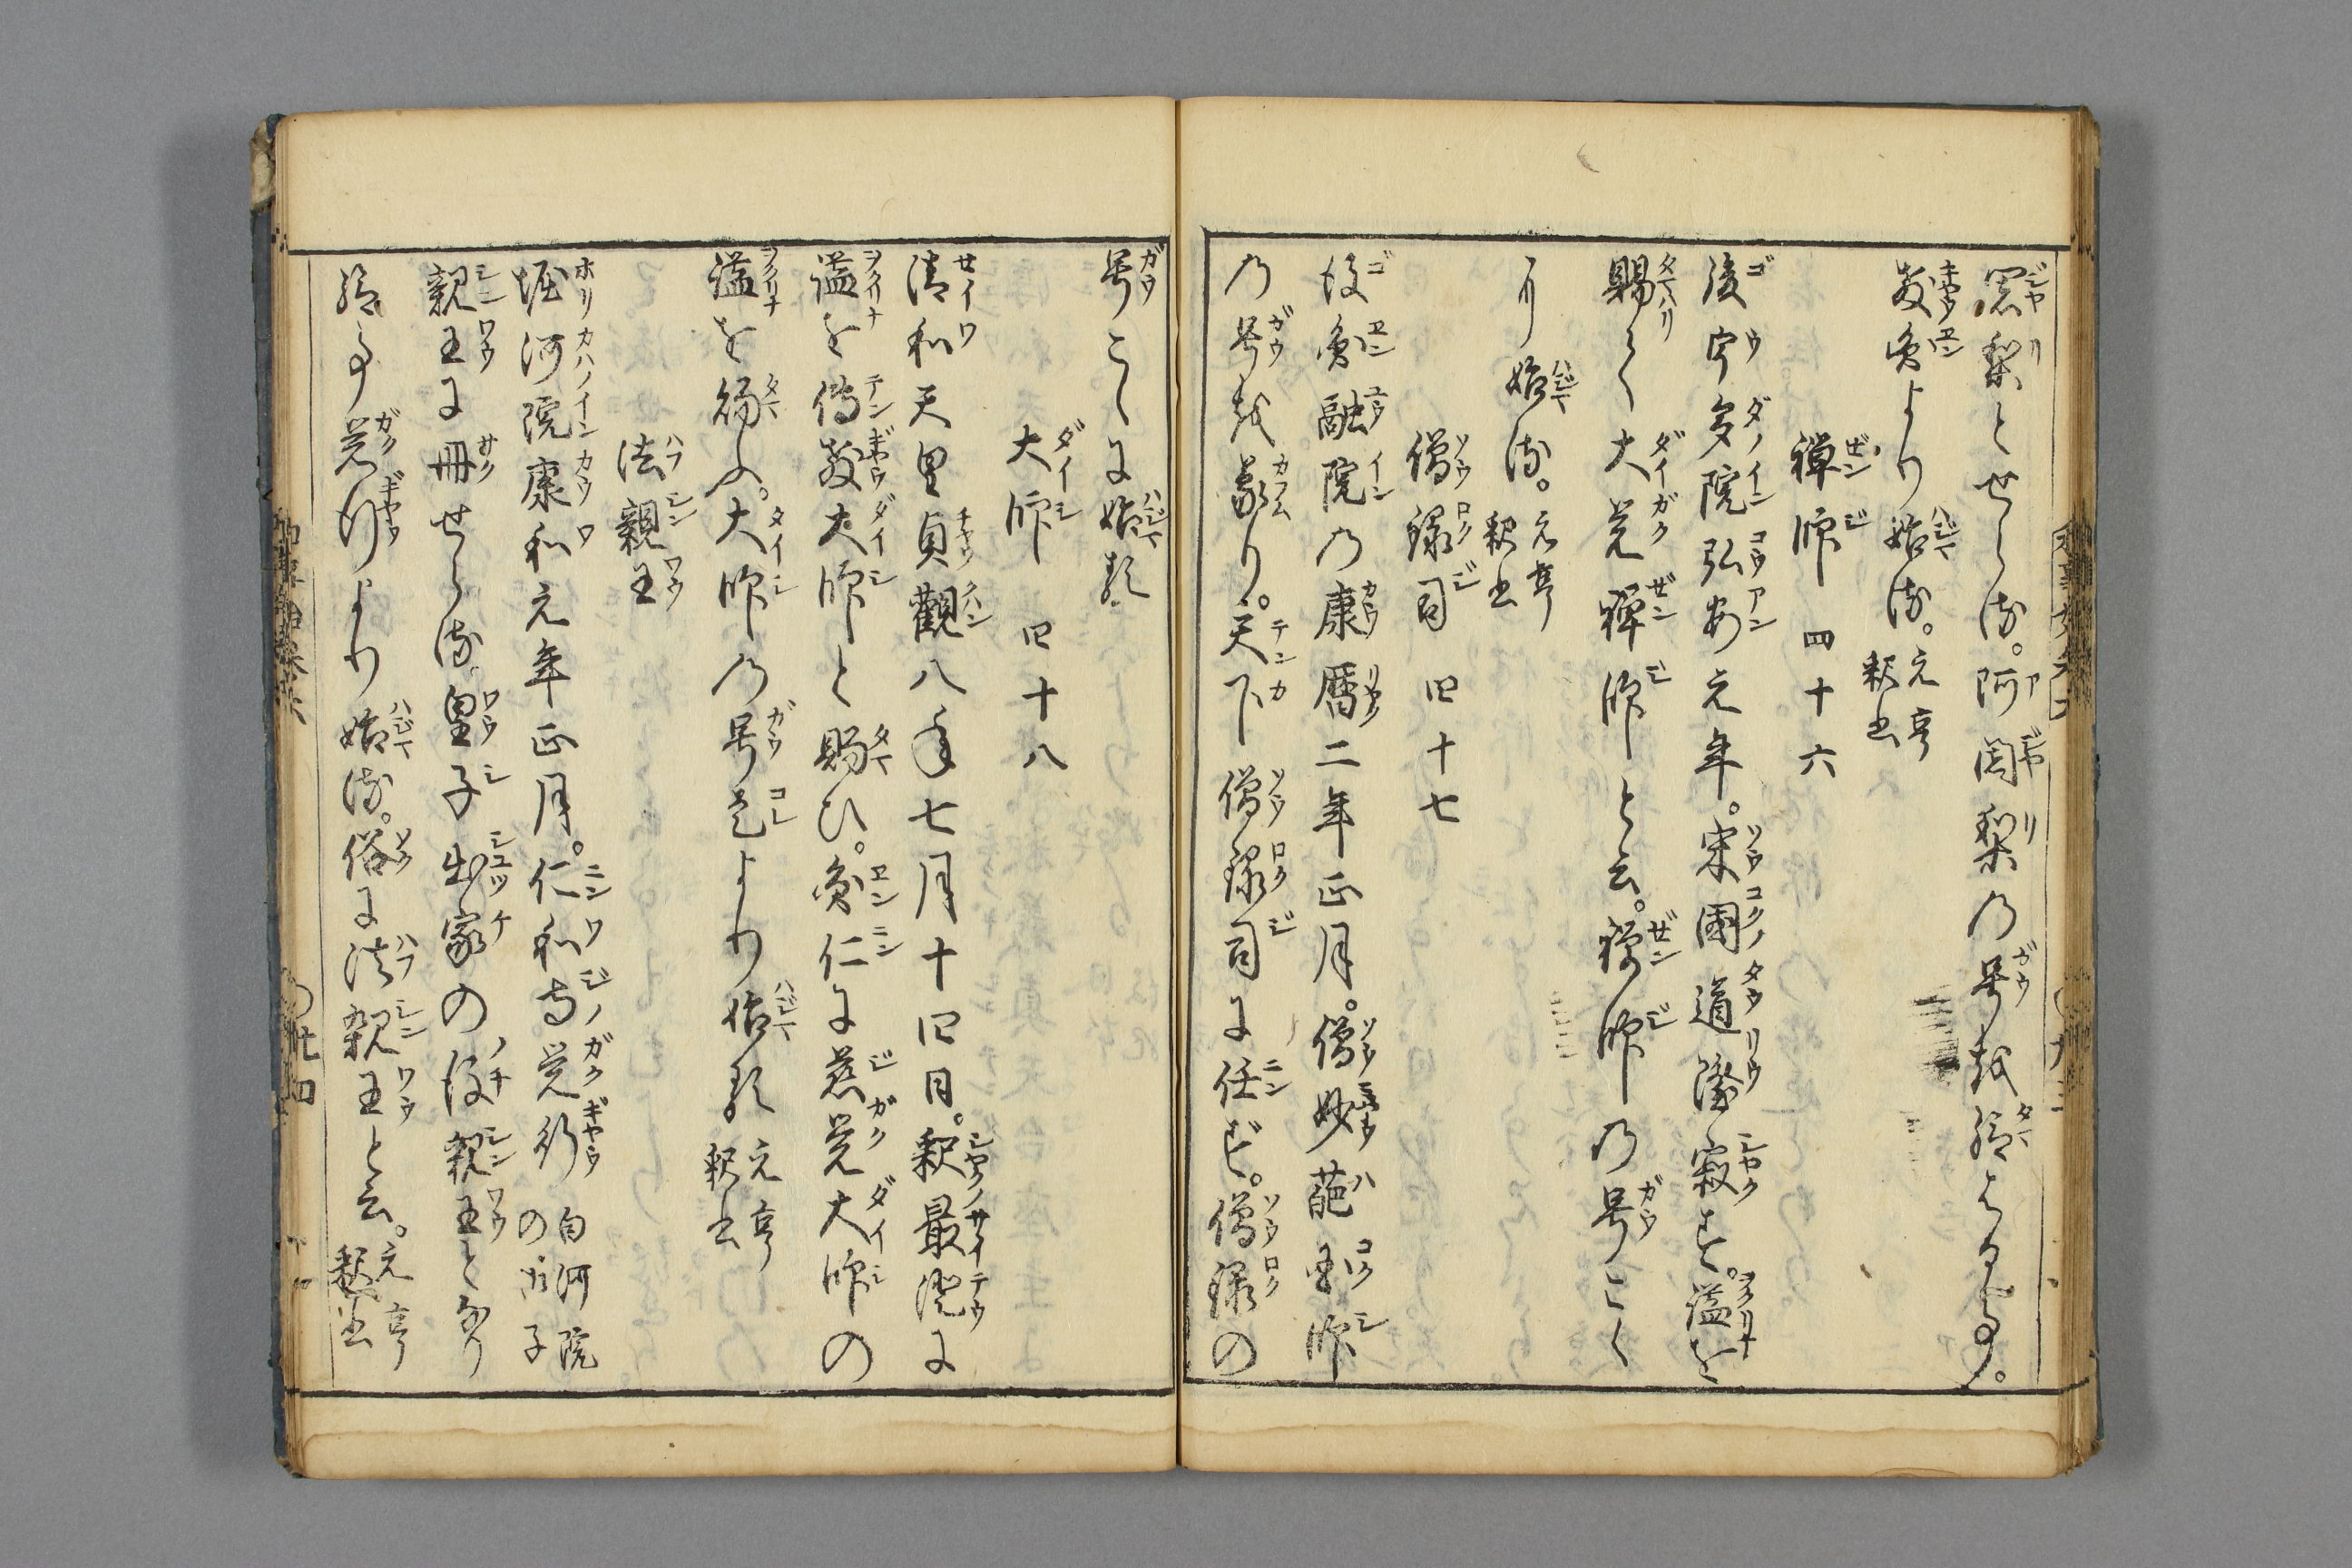 闍梨とせらる。阿闍梨の号を給はる事。
教円より始る。元亨釈書
禅師 四十六
後宇多院弘安元年。宋国道隆寂す。謚を
賜りて大覚禅師と云。禅師の号こゝ
に始る。元亨釈書
僧録司 四十七
後円融院の康暦二年正月。僧妙葩国師
の号を蒙り。天下僧録司に任ず。僧録の
号こゝに始る
大師 四十八
清和天皇貞観八年七月十四日。釈最澄に
謚を伝教大師と賜ひ。円仁に慈覚大師の
謚を賜ふ。大師の号是より始る 元亨釈書
法親王
堀河院康和元年正月。仁和寺覚行 白河院の太子
親王に冊せらる。皇子出家の後親王となり
給ふ事覚行より始る。俗に法親王と云。元亨釈書